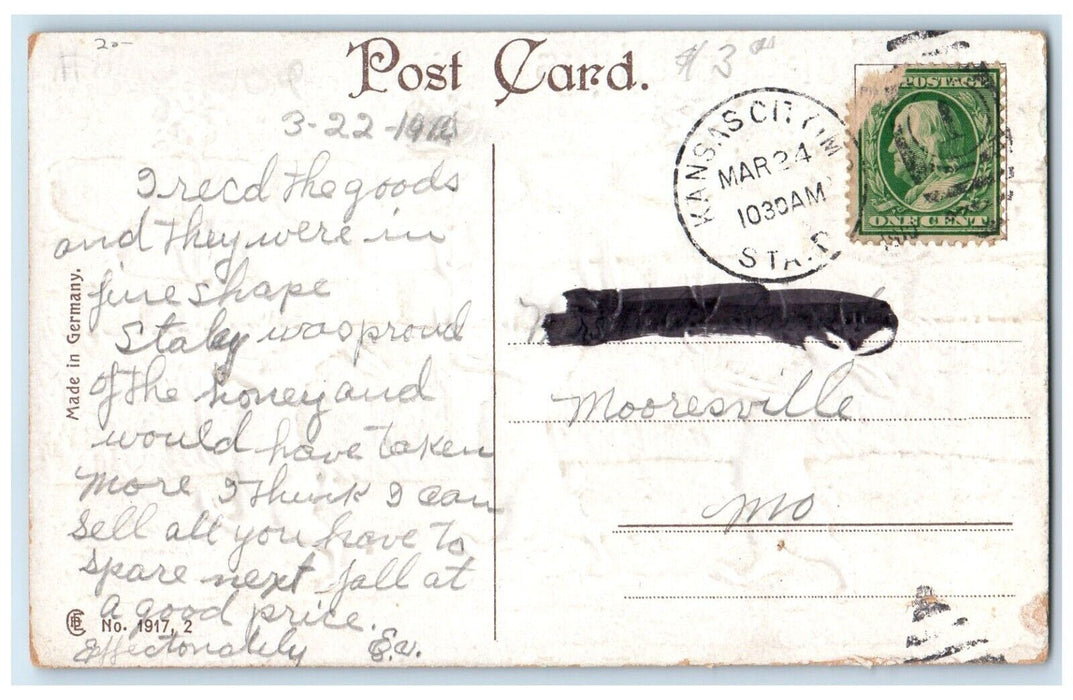 20-
Post Card.
$3 00
3-22-19
KANSAS CITY, M
MAR 24
1030AM
STA. D
POSTAGE
ONE CENT
I recd the goods
and they were in
fine shape
Staley was proud
of the honey and
would have taken
more I think I can
sell all you have to
spare next fall at
a good price.
Effectonately Ed.
Mooresville
Mo
Made in Germany.
No. 1917, 2